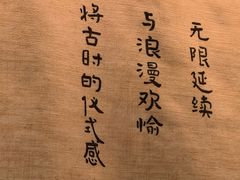 无限延续
与浪漫欢愉
将古时的仪式感